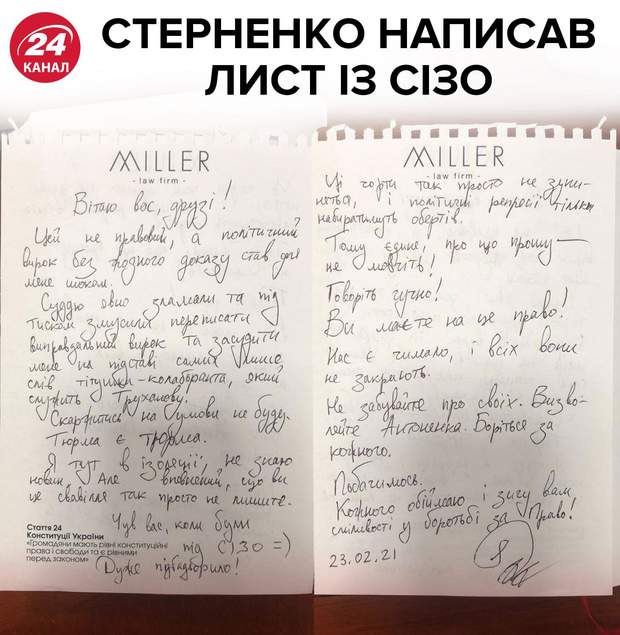 24
КАНАЛ
СТЕРНЕНКО НАПИСАВ
ЛИСТ ІЗ СІЗО
MILLER
- law firm -
Вітаю вас, друзі!
Цей не правовий, а політичний
вирок без жодного доказу став для
мене шоком.
Суддю явно зламали та під
тиском змусили переписати
виправдальний вирок та засудити
мене на підставі самих лише
слів тітушки-колаборанта, який
служить Труханову.
Скаржитись на умови не буду.
Тюрма є тюрма.
Я тут в ізоляції, не знаю
новин. Але впевнений, що ви
це свавілля так просто не лишите.
Чув вас, коли були
під СІЗО =)
Дуже підбадьорило!
Стаття 24
Конституції України
«Громадяни мають рівні конституційні
права і свободи та є рівними
перед законом»
MILLER
- law firm -
Ці чорти так просто не зупи-
няться, і політичні репресії тільки
набиратимуть обертів.
Тому єдине, про що прошу —
не мовчіть!
Говоріть гучно!
Ви маєте на це право!
Нас є чимало, і всіх вони
не закриють.
Не забувайте про своїх. Визво-
ляйте Антоненка. Боріться за
кожного.
Побачимось.
Кожного обіймаю і зичу вам
сміливості у боротьбі за Право!
23.02.21